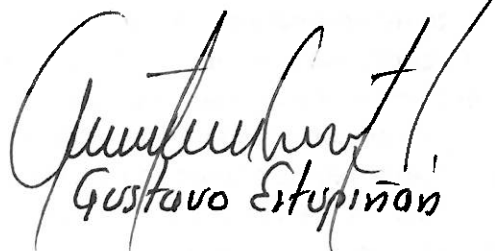 Gustavo Estupiñán